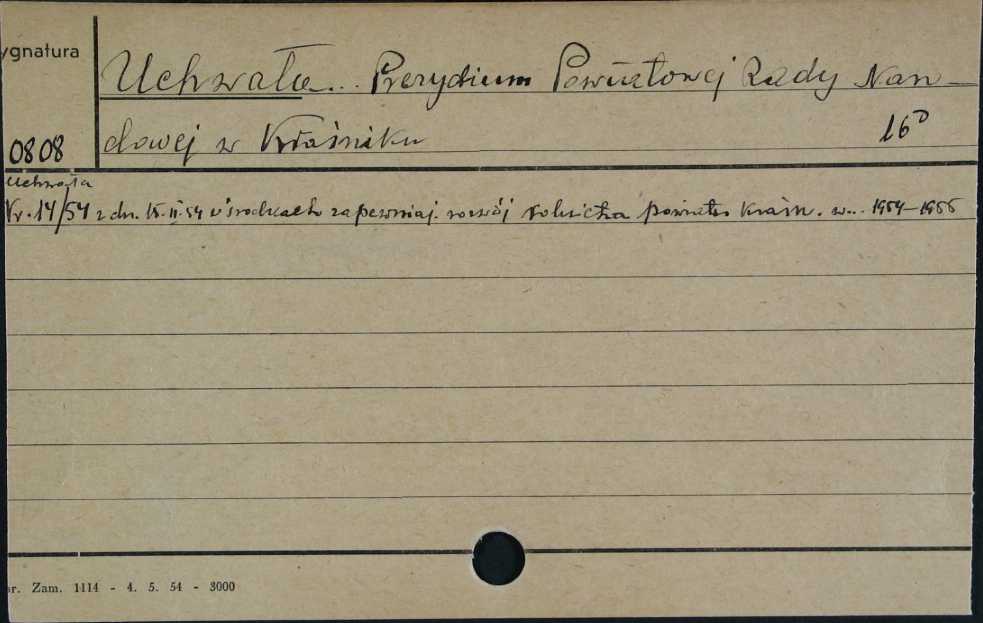 ygnatura
Uchwała... Prezydium Powiatowej Rady Naro-
0808 dowej w Kraśniku 16°
Uchwała
Nr. 14/54 z dn. 15.II.54 o środkach zapewniaj. rozwój rolnictwa powiatu kraśn. w... 1954-1955
r. Zam. 1114 - 4. 5. 54 - 3000